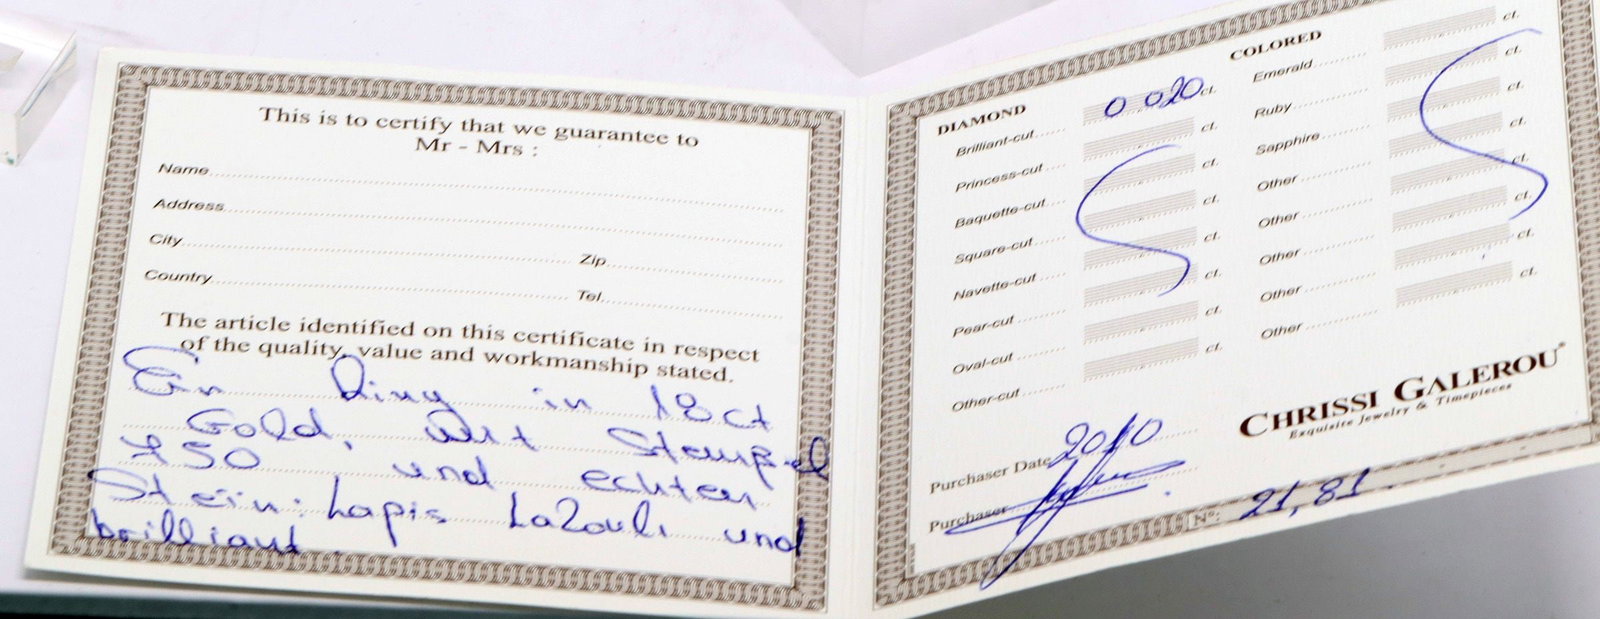 This is to certify that we guarantee to
Mr - Mrs :
Name
Address
City Zip
Country Tel.
The article identified on this certificate in respect
of the quality, value and workmanship stated.
Ein Ring in 18ct
Gold, mit Stempel
750 und echten
Stein: Lapis Lazouli und
brilliant.
DIAMOND
Brilliant-cut 0 020 ct.
Princess-cut ct.
Baquette-cut ct.
Square-cut ct.
Navette-cut ct.
Pear-cut ct.
Oval-cut ct.
Other-cut ct.
COLORED
Emerald ct.
Ruby ct.
Sapphire ct.
Other ct.
Other ct.
Other ct.
Other ct.
Other ct.
CHRISSI GALEROU®
Exquisite Jewelry & Timepieces
Purchaser Date 2010
Purchaser
N°: 21,81.